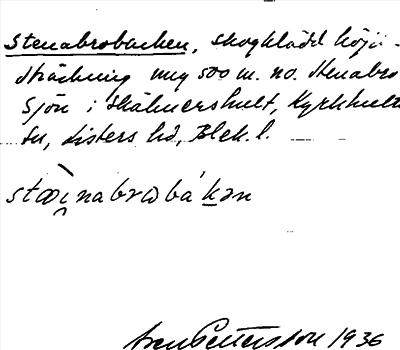 Stenabrobacken, skogklädd höjd-
sträckning ung 500 m. no. Stenabro
sjön i Skåhnershult, Kyrkhult
sn, Listers hd, Blek. l.
stæi̯nabrωbákan
Sven Pettersson 1936